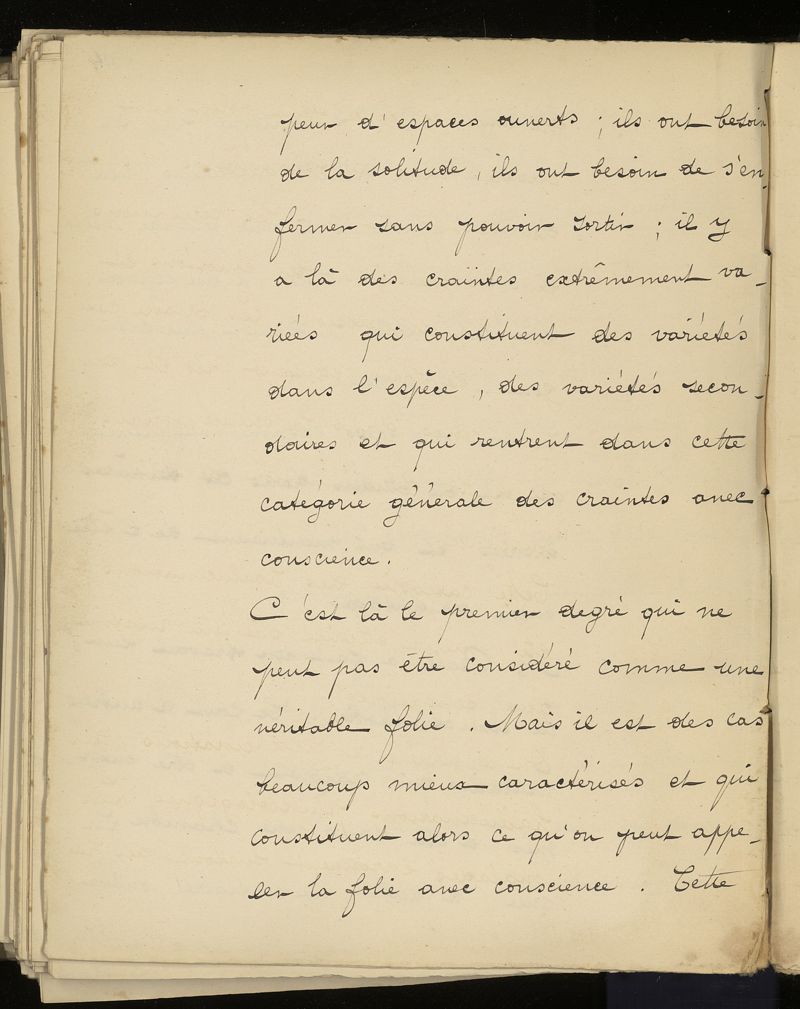 peur d'espaces ouverts ; ils ont besoin
de la solitude, ils ont besoin de s'en-
fermer sans pouvoir sortir ; il y
a là des craintes extrêmement va-
riées qui constituent des variétés
dans l'espèce, des variétés secon-
daires et qui rentrent dans cette
catégorie générale des craintes avec
conscience.
C'est là le premier degré qui ne
peut pas être considéré comme une
véritable folie. Mais il est des cas
beaucoup mieux caractérisés et qui
constituent alors ce qu'on peut appe-
ler la folie avec conscience. Cette